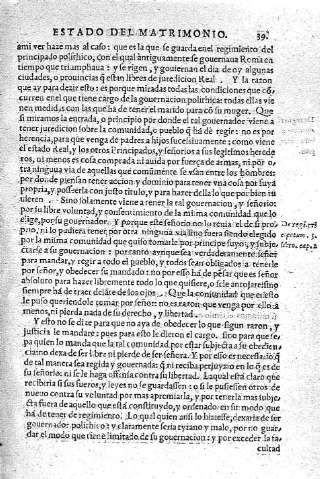 ESTADO DEL MATRIMONIO. 39.
ami ver haze mas al caso: que es la que se guarda en el regimiento del
principado politico, con el qual antiguamente se gouernaua Roma en
tiempo que triumphaua: y se rigen, y gouiernan el dia de oy algunas
ciudades, o prouincias q̃ estan libres de juredicion Real. Y la razon
que ay para dezir esto: es porque miradas todas las condiciones que cõ
curren en el que tiene cargo de la gouernacion politica: todas ellas vie
nen medidas con las que ha de tener el marido para cõ su muger. Que
si miramos la entrada, o principio por donde el tal gouernador viene a
tener juredicion sobre la comunidad, o pueblo q̃ ha de regir: no es por
herencia, para que venga de padres a hijos sucesiuamente: como viene
el estado Real, y los otros Principados, y señorios a sus legitimos herede
ros, ni menos es cosa comprada ni auida por fuerça de armas, ni por o-
tra ninguna via de aquellas que comũmente se vsan entre los hombres:
por donde piensan tener accion y dominio para tener vna cosa por suya
propria, y posseerla con justo titulo, y para hazer della lo que por bien tu
uieren. Sino solamente viene a tener la tal gouernacion, y señorio:
por su libre voluntad, y consentimiento de la misma comunidad que lo
elige, por su gouernador. Y porque este señorio no lo tenia el de si pro
prio, ni lo pudiera tener por otra ninguna via, sino fuera siendo elegido
por la misma comunidad que quiso tomarle por principe suyo, y subje
ctarse a su gouernacion: por tanto aunque sea verdaderamente señor
para mandar, y regir a todo el pueblo, y todos sean obligados a tenerle
por señor, y obedecer su mandado: no por esso ha de pẽsar que es señor
absoluto para hazer libremente todo lo que quisiere, o se le antojare: sino
siempre ha de traer delãte de los ojos. Que la comunidad que en esto
le puso queriendole tomar por señor, no es razon que venga por ello a
menos, ni pierda nada de su derecho, y libertad.
Y esto no se dize para que no aya de obedecer lo que segun razon, y
justicia le mandare: pues para esto le dieron el cargo. sino para que se
pa quien lo manda que la tal comunidad por estar subjecta a su obedien
cia no dexa de ser libre ni pierde de ser señora. Y por esso es necessario q̃
de tal manera sea regida y gouernada q̃ ni reciba perjuyzio en lo q̃ es de
su señorio: ni se le haga offensa contra su libertad. La qual està claro que
recibiria si sus fueros, y leyes no se guardassen: o si le pusiessen otros de
nuevo contra su voluntad por mas apremiarla, y por tenerla mas subje
cta fuera de aquello que està constituydo, y ordenado en su modo que
ha de tener de regimiento. Lo qual quien ansi lo hiziesse, dexaria de ser
gouernador politico: y claramente seria tyrano y malo, por no guar
dar el modo que tiene limitado de su gouernacion: y por exceder la fa
cultad
De regi